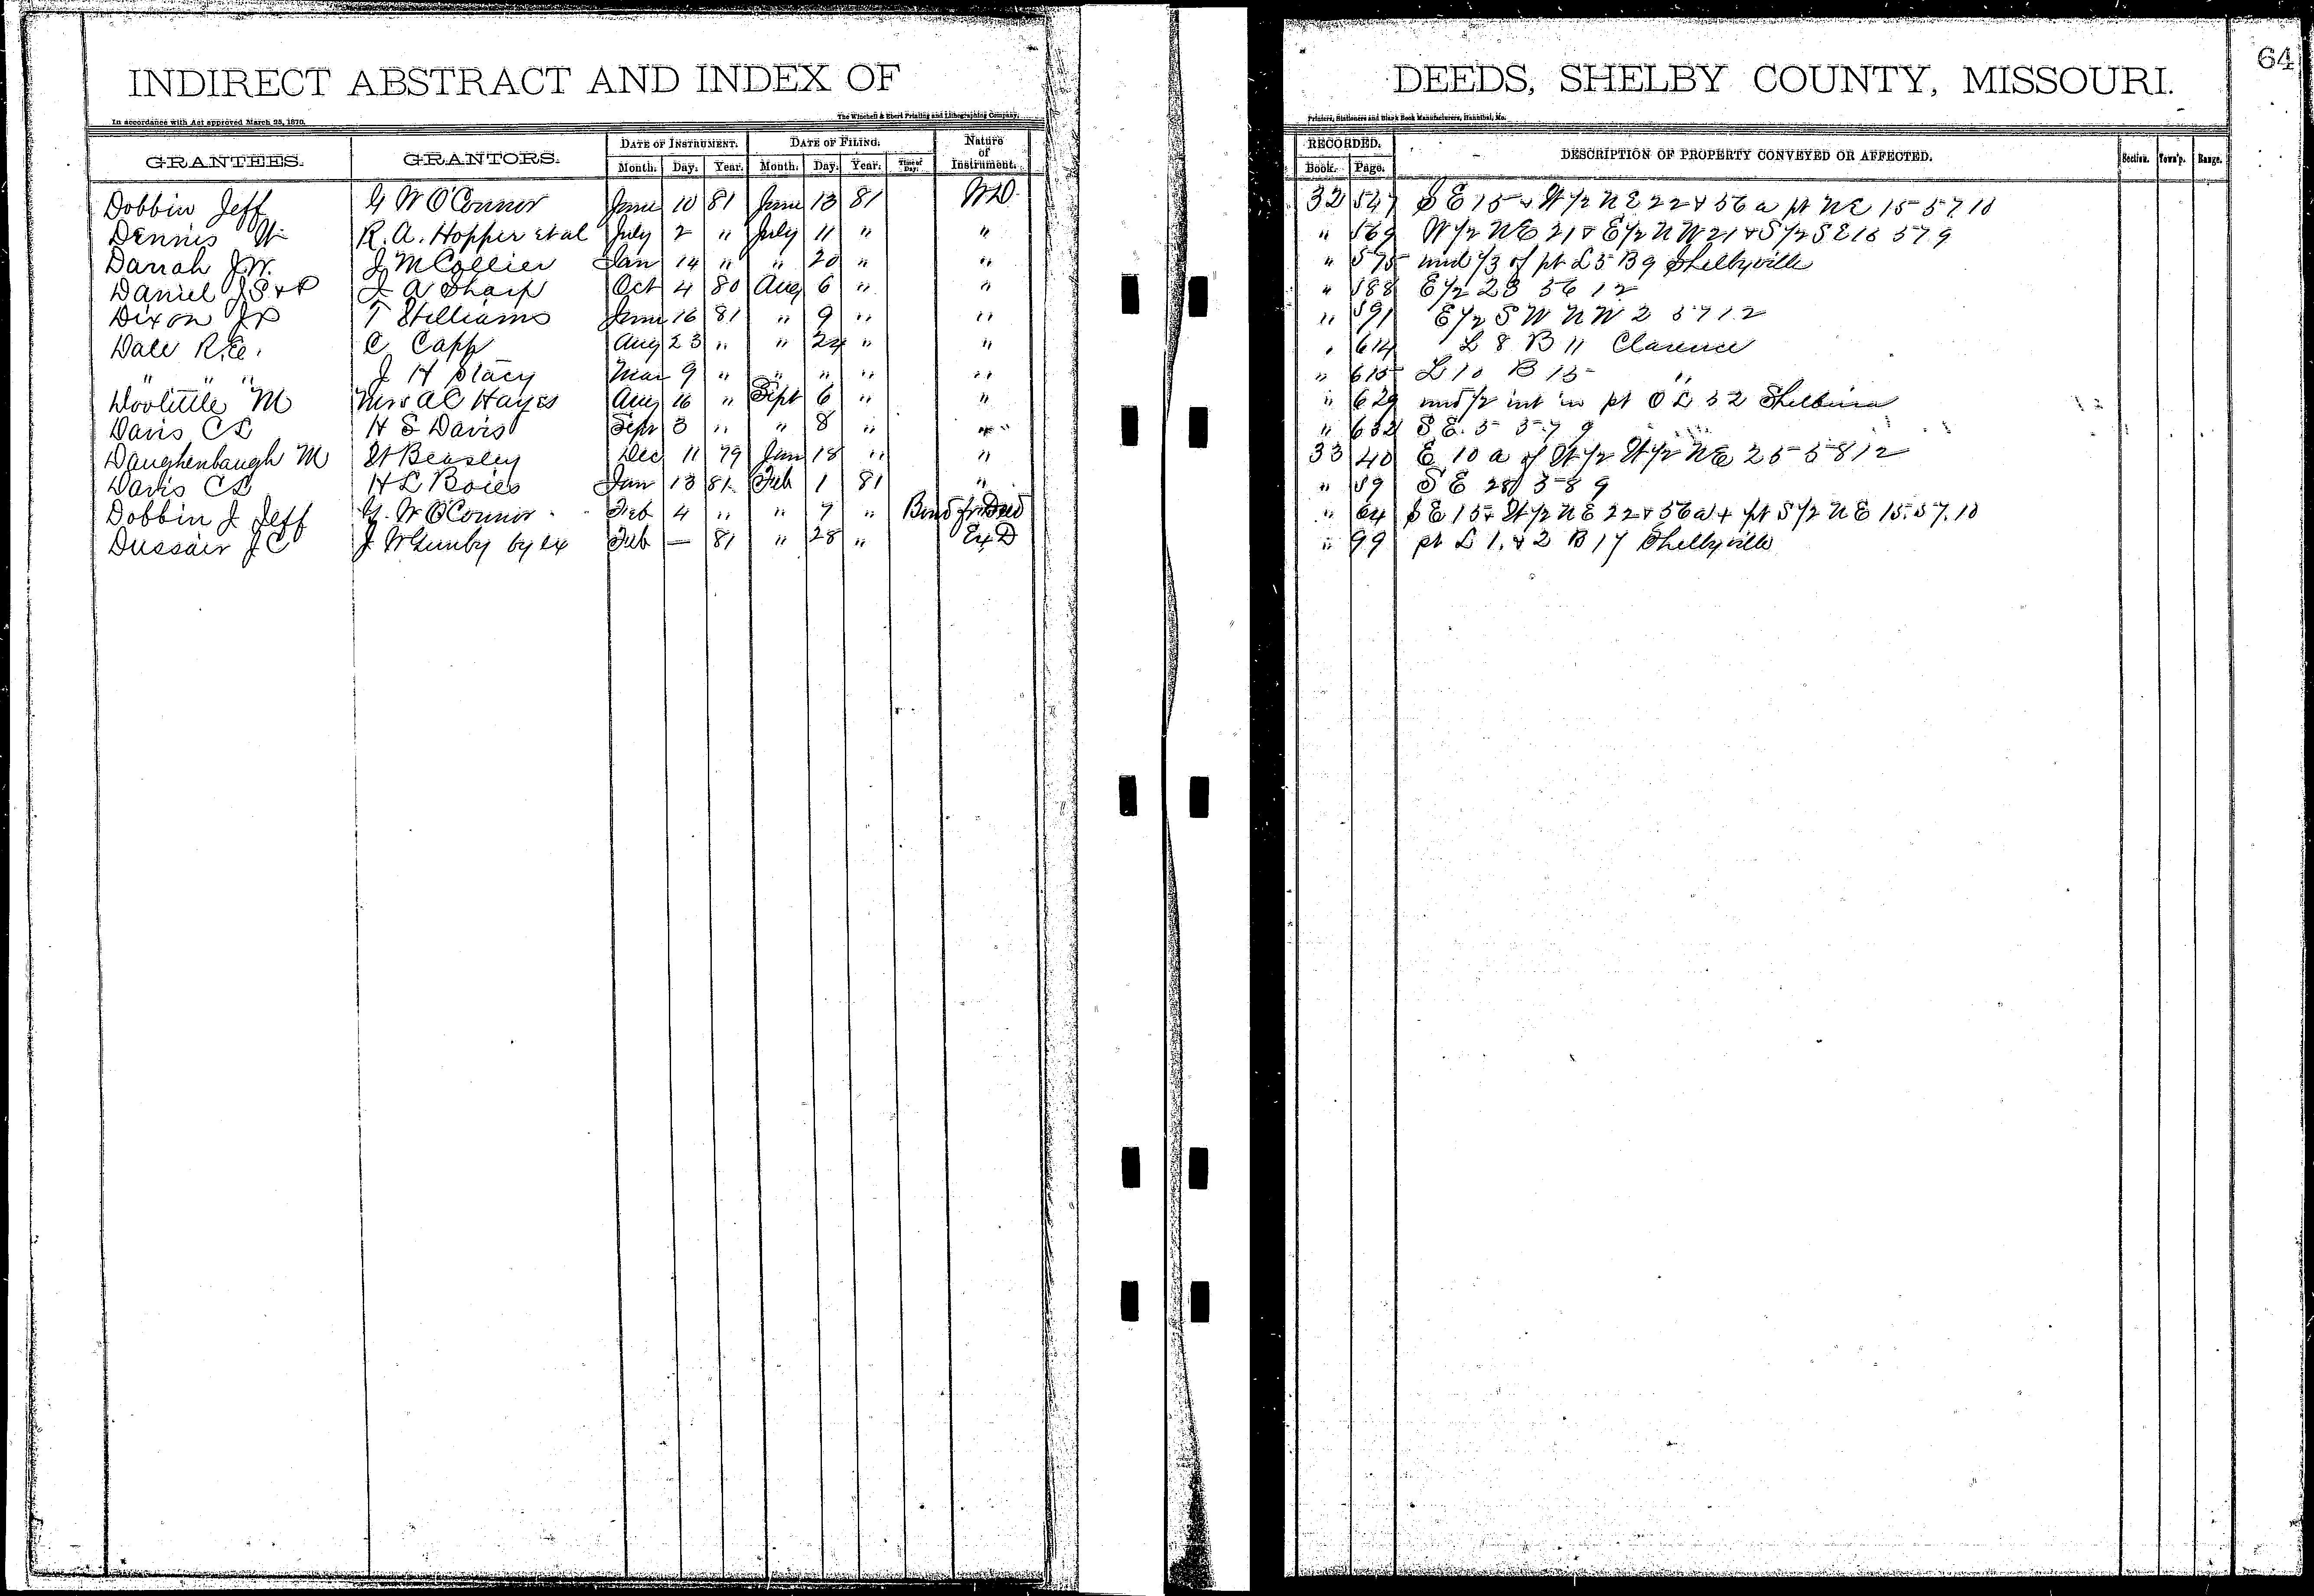 INDIRECT ABSTRACT AND INDEX OF
In accordance with Act approved March 28, 1870.
The Winchell & Ebert Printing and Lithographing Company,
GRANTEES. GRANTORS. DATE OF INSTRUMENT. DATE OF FILING. Nature of Instrument.
Month. Day. Year. Month. Day. Year. Time of Day.
Dobbin Jeff G W O'Connor June 10 81 June 13 81 WD
Dennis W R. A. Hopper et al July 2 " July 11 " "
Darrah J.W. J M Collier Jan 14 " " 20 " "
Daniel J S & P J A Sharp Oct 4 80 Aug 6 " "
Dixon J P T Williams June 16 81 " 9 " "
Dale R.E. C Capp Aug 23 " " 24 " "
" " " J H Stacy Mar 9 " " " " "
Doolittle M Mrs A C Hayes Aug 16 " Sept 6 " "
Davis C L H S Davis Sept 3 " " 8 " "
Daughenbaugh M W Beasley Dec 11 79 Jan 18 " "
Davis C L H L Boies Jan 13 81 Feb 1 81 "
Dobbin J Jeff G. W O'Connor Feb 4 " " 7 " Bond for Deed
Dussair J C J W Gunby by ex Feb — 81 " 28 " Ex D
DEEDS, SHELBY COUNTY, MISSOURI.
64
Printers, Stationers and Blank Book Manufacturers, Hannibal, Mo.
RECORDED. DESCRIPTION OF PROPERTY CONVEYED OR AFFECTED. Section. Town'p. Range.
Book. Page.
32 547 S E 15 & W 1/2 N E 22 & 56 a pt N E 15 57 10
" 569 W 1/2 N E 21 & E 1/2 N W 21 & S 1/2 S E 16 57 9
" 575 und 1/3 of pt L 5 B 9 Shelbyville
" 588 E 1/2 23 56 12
" 591 E 1/2 S W N W 2 57 12
" 614 L 8 B 11 Clarence
" 615 L 10 B 15 "
" 629 und 1/2 int in pt O L 32 Shelbina
" 632 S E. 5 57 9
33 40 E 10 a of W 1/2 W 1/2 N E 25 58 12
" 59 S E 28 58 9
" 64 S E 15 & W 1/2 N E 22 & 56 a + pt S 1/2 N E 15. 57. 10
" 99 pt L 1. & 2 B 17 Shelbyville